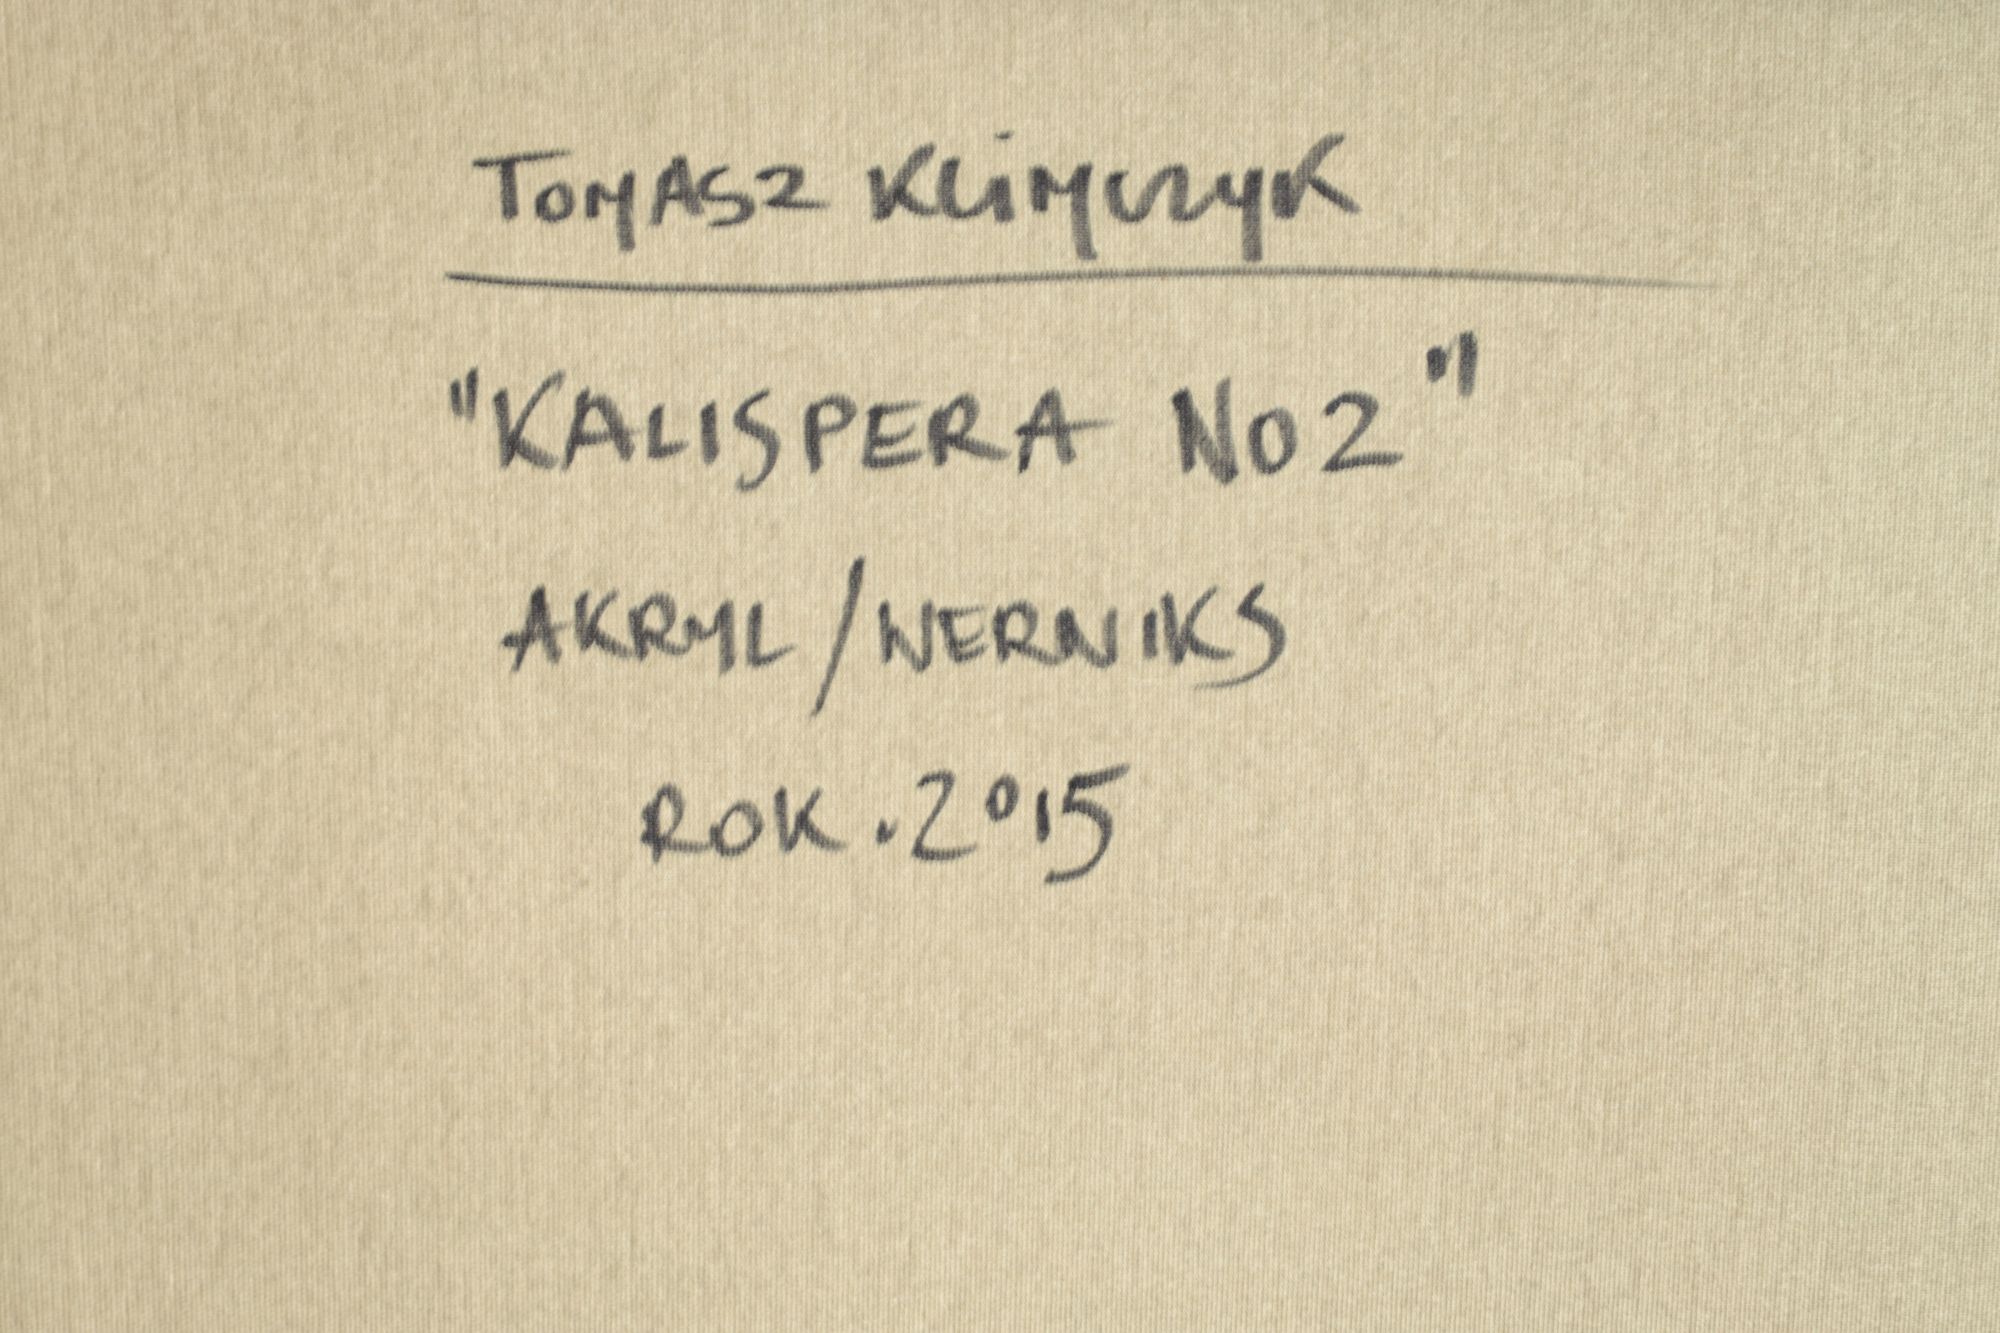 TOMASZ KLiMCZYK
"KALISPERA NO 2"
AKRYL/WERNIKS
ROK.2015